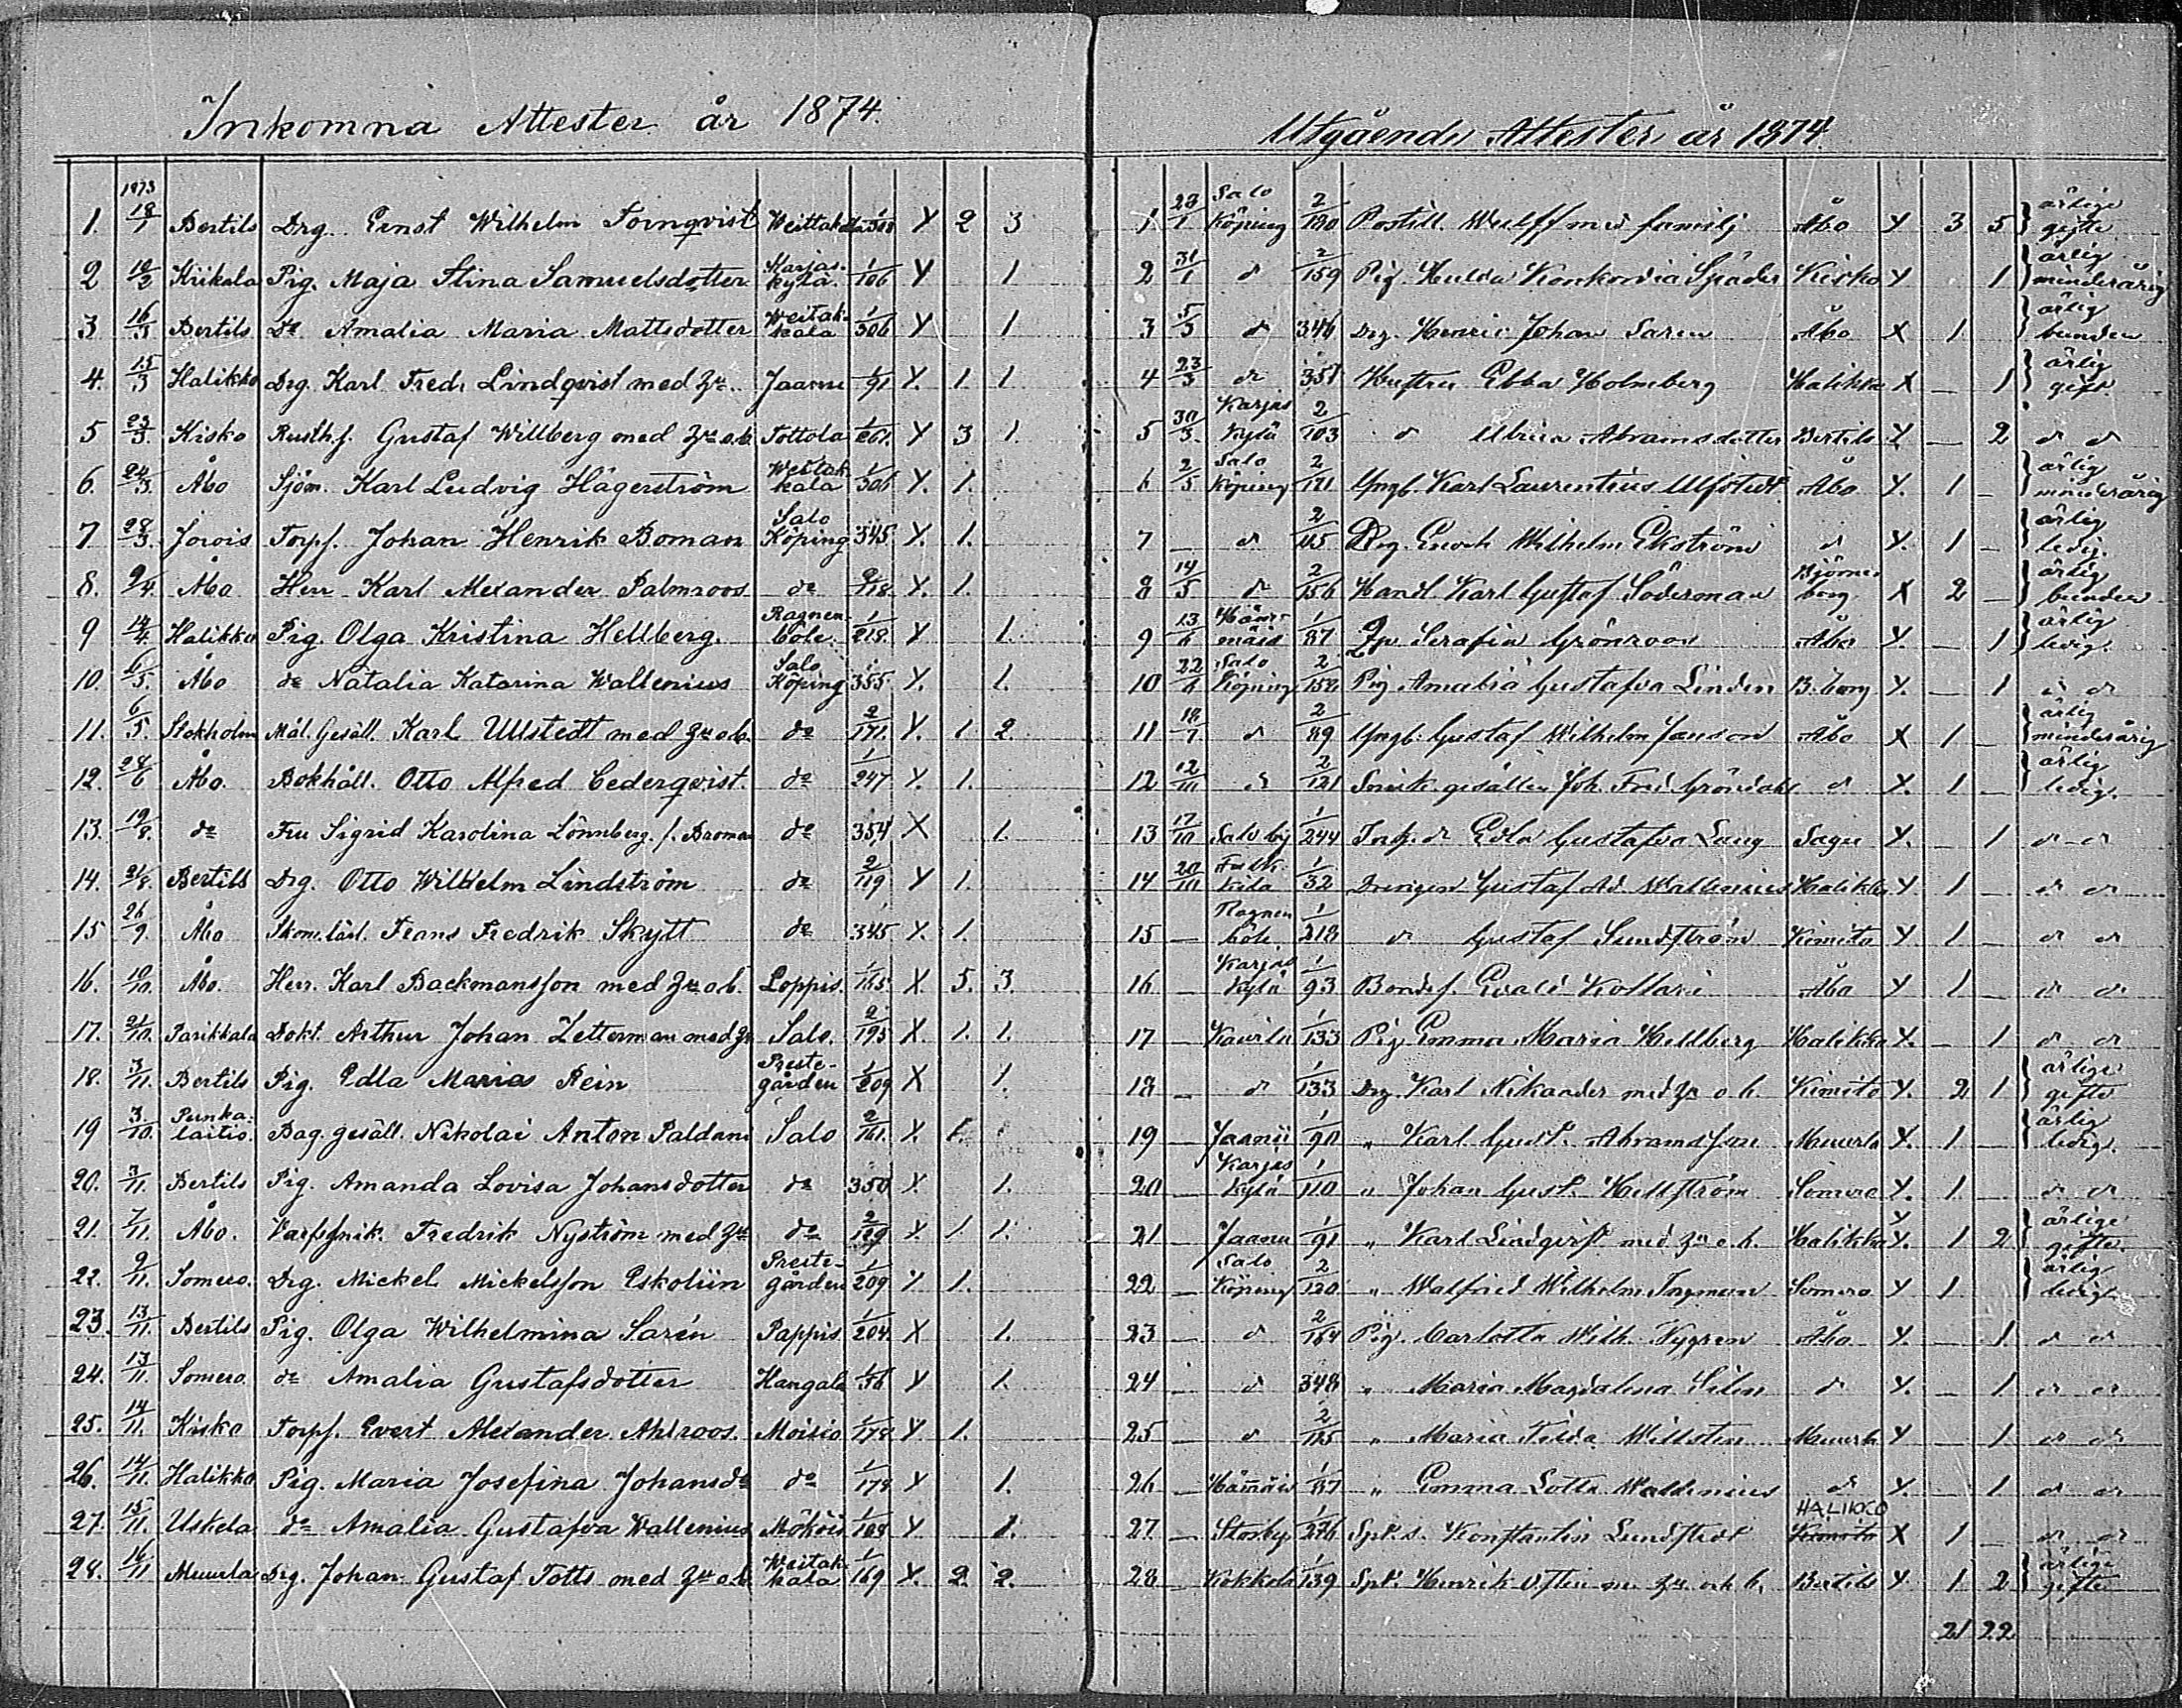 Inkomna Attester år 1874.
1873
1. 18/1 Bertils Drg. Ernst Wilhelm Törnqvist Weittakkala 1/308 Y 2 3
2 10/2 Kiikala Pig. Maja Stina Samuelsdotter Karjas-kylä 1/106 Y 1
3. 16/3 Bertils De Amalia Maria Mattsdotter Weitak-kala 1/306 Y 1
4. 15/3 Halikko Drg. Karl Fred. Lindqvist med Hu. Jaanu 1/91 Y. 1. 1.
5 23/3. Kisko Rusth.f. Gustaf Willberg med Hu o.b. Tottola 1/261. Y 3 1.
6. 24/3. Åbo Sjöm. Karl Ludvig Hägerström Weitak-kala 1/306 Y. 1.
7 28/3. Jorois Torpf. Johan Henrik Boman Salo Köping 345. Y. 1.
8. 9/4 Åbo Herr Karl Alexander Palmroos de 2/118. Y. 1.
9 14/4. Halikko Pig. Olga Kristina Hellberg. Ragnen-böle. 1/218. Y 1.
10. 6/5. Åbo de Natalia Katarina Wallenius Salo Köping 355. Y. 1.
11. 6/5. Stokholm Mål. Gesäll. Karl Ullstedt med Hu o.b. de 2/171. Y. 1 2.
12. 28/6 Åbo. Bokhåll. Otto Alfred Cederqvist. de 1/247 Y. 1.
13. 19/8. de Fru Sigrid Karolina Lönnberg f. Broman de 354 X 1.
14. 21/8. Bertils Drg. Otto Wilhelm Lindström de 2/119 Y 1.
15 26/9. Åbo Skom. lärl. Frans Fredrik Skytt de 345 Y. 1.
16. 10/10. Åbo. Herr. Karl Backmansson med Hu o.b. Loppis. 1/165 X. 5. 3.
17. 21/10. Parikkala Dokt. Arthur Johan Zetterman med Hu Salo. 2/195 X. 1. 1.
18. 3/11. Bertils Pig. Edla Maria Rein Preste-gården 1/209 X 1.
19 3/10. Punka-laitio. Bag. gesäll. Nikolai Anton Paldani Salo 2/161. X. 1.
20. 3/11. Bertils Pig. Amanda Lovisa Johansdotter de 350 X. 1.
21. 7/11. Åbo. Fredrik Nyström med Hu de 2/129 X. 1. 1.
22. 9/11. Somero. Drg. Mickel Mickelsson Eskoliin Preste-gården 1/209 Y 1.
23. 13/11. Bertils Pig. Olga Wilhelmina Sarén Pappis 1/204. X 1.
24. 13/11. Somero. de Amalia Gustafsdotter Hangala 1/56 Y 1.
25. 14/11. Kisko Torpf. Evert Alexander Ahlroos. Moisio 1/178 Y 1.
26. 14/11. Halikko Pig. Maria Josefina Johansdr de 1/178 Y 1.
27. 15/11. Uskela de Amalia Gustafva Wallenius Mököis 1/188 Y 1.
28. 16/11 Muurla Drg. Johan Gustaf Totts med Hu o.b. Weitak-kala 1/169 Y. 2. 2.
Utgående Attester år 1874
1 28/1 Salo Köping 2/180 Postill. Wulff med familj Åbo Y 3 5 ärlige gifte
2 31/1 d 2/159 Pig. Hulda Konkordia Spåder Kisko Y 1 ärlig minderårig
3 5/3 d 346 Drg. Henric Johan Saren Åbo X 1 ärlig bunden
4 23/3 d 351 Hustru Ebba Holmberg Halikko X — 1 ärlig gift.
5 30/3. Karjas kylä 2/103 d Ulrica Abramsdotter Bertils Y — 2 d d
6 2/5 Salo Köping 2/171 Yngl. Karl Laurentius Ullstedt Åbo Y. 1 — ärlig minderårig
7 — d 2/115 Drg. Enoch Wilhelm Ekström d Y. 1 — ärlig ledig.
8 14/5 d 2/156 Handl Karl Gustaf Söderman Björneborg X 2 — ärlig bunden
9 13/6 1/87 Serafia Grönroos Åbo Y. — 1 ärlig ledig.
10 22/6 Salo Köping 2/158 Pig Amalia Gustafva Linden B:borg Y. — 1 d d
11 18/7 d 2/89 Yngl. Gustaf Wilhelm Janson Åbo X 1 — ärlig minderårig
12 12/10 d 2/121 gesällen Joh. Fred Gröndahl d Y. 1 — ärlig ledig.
13 17/10 Salo by 1/244 Edla Gustafva Lang Sagu Y. — 1 d d
14 20/10 1/32 Drengen Gustaf Ad Wallenius Halikko Y 1 — d d
15 — Ragnen böle 1/218 d Gustaf Sundström Kimito Y 1 — d d
16 — Karjas kylä 1/93 Bondes. Kollari Åbo Y 1 — d d
17 — Kavila 1/133 Pig Emma Maria Hellberg Halikko Y. — 1 d d
18 — d 1/133 Drg. Karl Nikander med Hu o. b. Kimito Y. 2 1 ärlige gifte
19 — Jaanu 1/90 " Karl Gust. Abramsson Muurla Y. 1 — ärlig ledig.
20 — Karjas kylä 1/110 " Johan Gust. Hellström Somero Y. 1 d d
21 — Jaanu 1/91 " Karl Lindqvist med Hu o.b. Halikko Y. 1 2 ärlige gifte.
22 — Salo Köping 2/120 " Walfrid Wilhelm Ingman Somero Y 1. ärlig ledig.
23 — d 2/164 Pig. Carlotta Wilh. Nygren Åbo Y. — 1. d d
24 — d 348 " Maria Magdalena Silen d Y. — 1 d d
25 — d 2/125 " Maria Millsten Muurla Y — 1. d d
26 — 1/87 " Emma Lotta Wallenius d Y. — 1 d d
27. — Storby 1/276 Konstantin Lundstedt Kimito HALIKKO X 1 — d d
28 — Kokkola 1/139 Henrik med Hu och b. Bertils Y 1 2 ärlige gifte
21 22